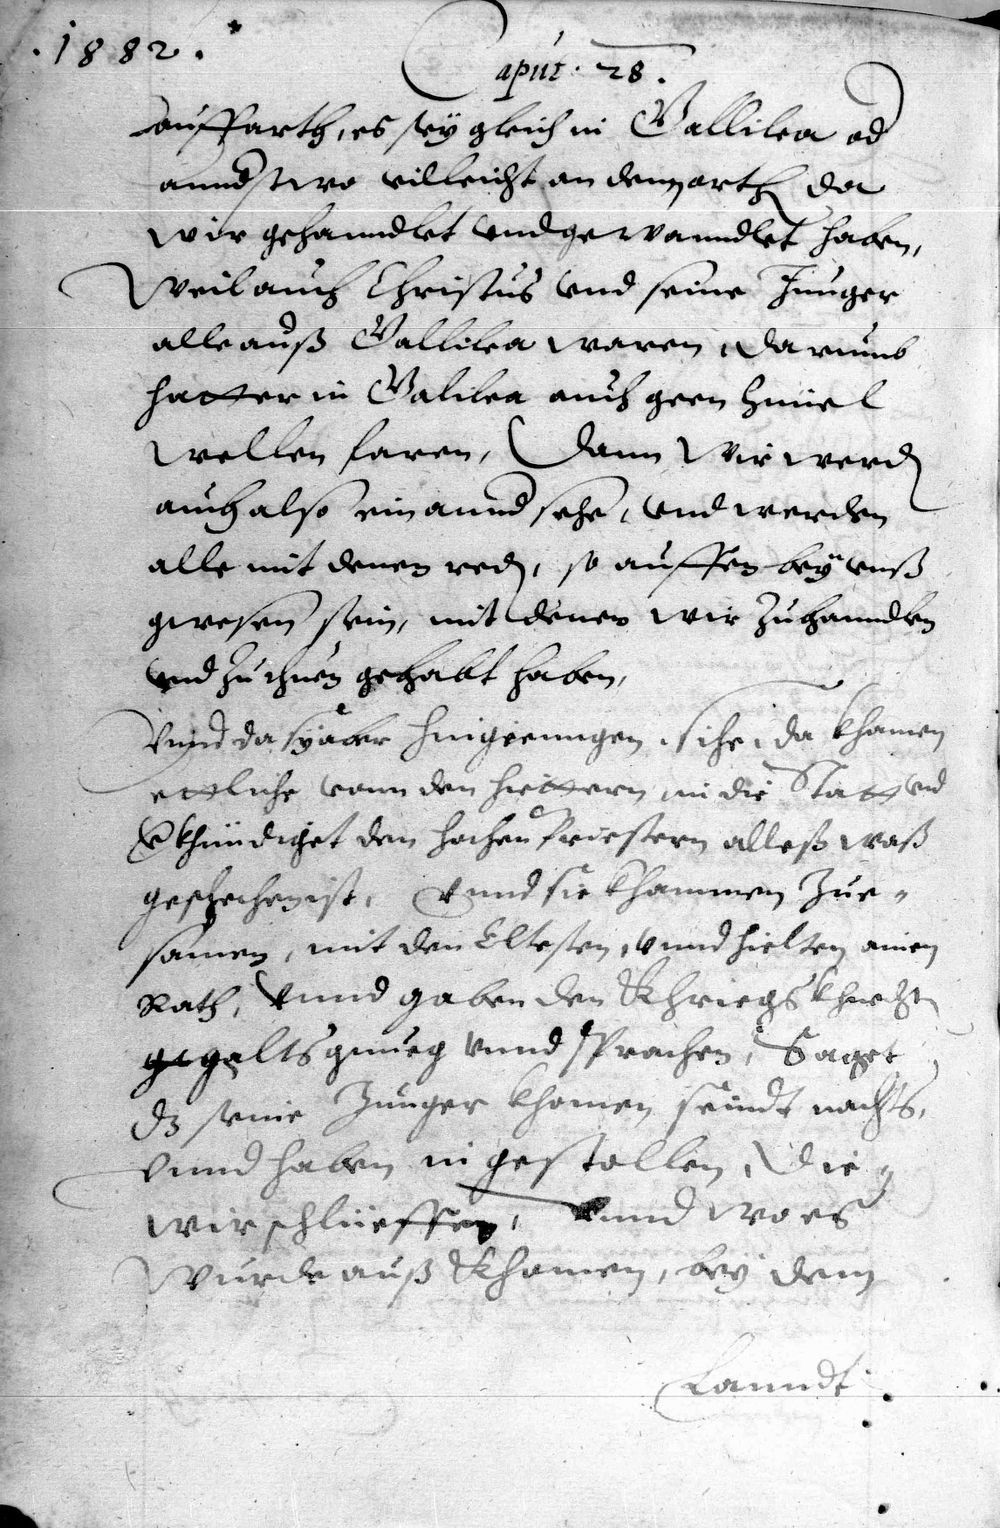 .1882.
Caput. 28.
auffarth, es seÿ gleich in Gallilea od
annd̃stwo villeicht an dem orth da
wir gehanndlet vnd gewanndlet haben,
Weil auch Christus vnd seine Junger
alle auß Gallilea waren, darumb
hatt er in Galilea auch geen himel
wellen faren, Dann Wir werdn
auch also ein annd̃ sehen, vnd werden
alle mit denen redn, so auffen beÿ vnß
gwesen sein, mit denen wir zuhanndlen
vnd zu thuen gehabt haben,
Vnnd da sÿ aber hingiennngen, sihe, da khamen
ettliche vonn den hiettern in die Statt vnd
ṽkhündiget den hochen Priestern alleß waß
geschechen ist, Vnnd sie khammen Zue=
samen, mit den Eltesten, vnnd hielten ainen
Rath, Vnnd gaben den Khriegskhnechtn
geltsgnueg vnnd sprachen, Saget
dz seine Junger khomen seindt nachts,
vnnd haben in gestollen, Die
wir schlieffen, Vnnd wo es
Wurde auß Khomen, beÿ dem
Lanndt